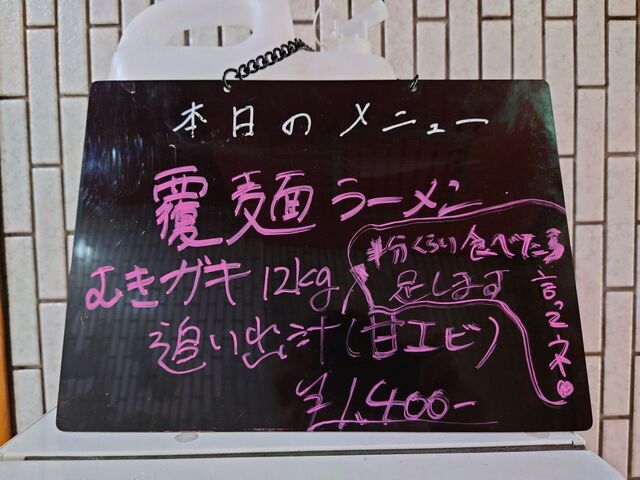 本日のメニュー
覆麺ラーメン
むきガキ 12kg
追い出汁(甘エビ)
¥1,400-
半分くらい食べたら
足します
言ってネ